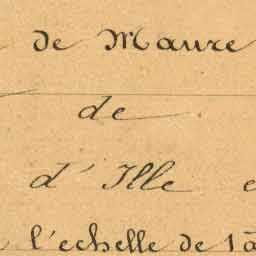 de Maure
de
d' Ille e
l'echelle de 1 à